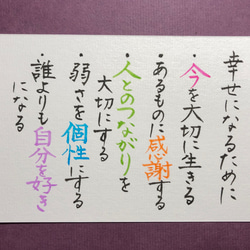 幸せになるために
・今を大切に生きる
・あるものに感謝する
・人とのつながりを
大切にする
・弱さを個性にする
・誰よりも自分を好き
になる